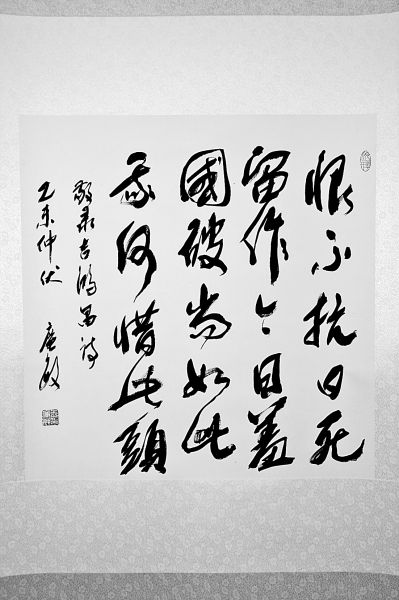 恨不抗日死
留作今日羞
國破尚如此
我何惜此頭
敬录吉鴻昌诗
乙未仲伏